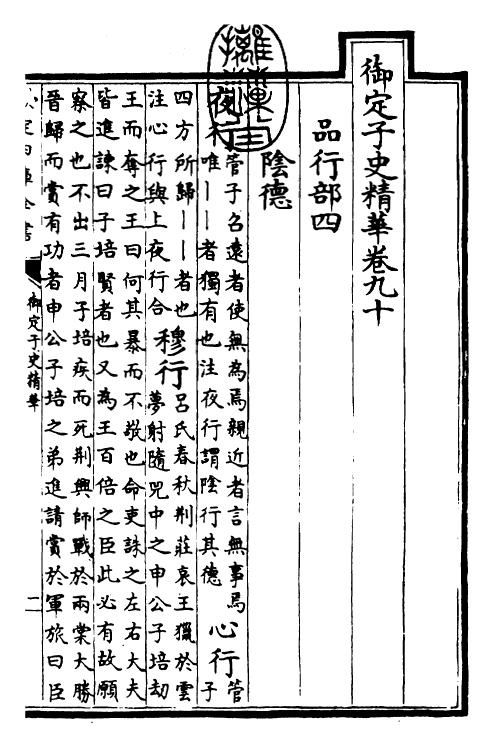 御定子史精華卷九十
品行部四
陰德
夜行
管子召遠者使無為焉親近者言無事焉
唯丨丨者獨有也注夜行謂陰行其德
心行
管子
四方所歸丨丨者也
注心行與上夜行合
穆行
呂氏春秋荆莊哀王獵於雲
夢射隨兕中之申公子培劫
王而奪之王曰何其暴而不敬也命吏誅之左右大夫
皆進諫曰子培賢者也又為王百倍之臣此必有故願
察之也不出三月子培疾而死荆興師戰於兩棠大勝
晉歸而賞有功者申公子培之弟進請賞於軍旅曰臣
御定子史精華